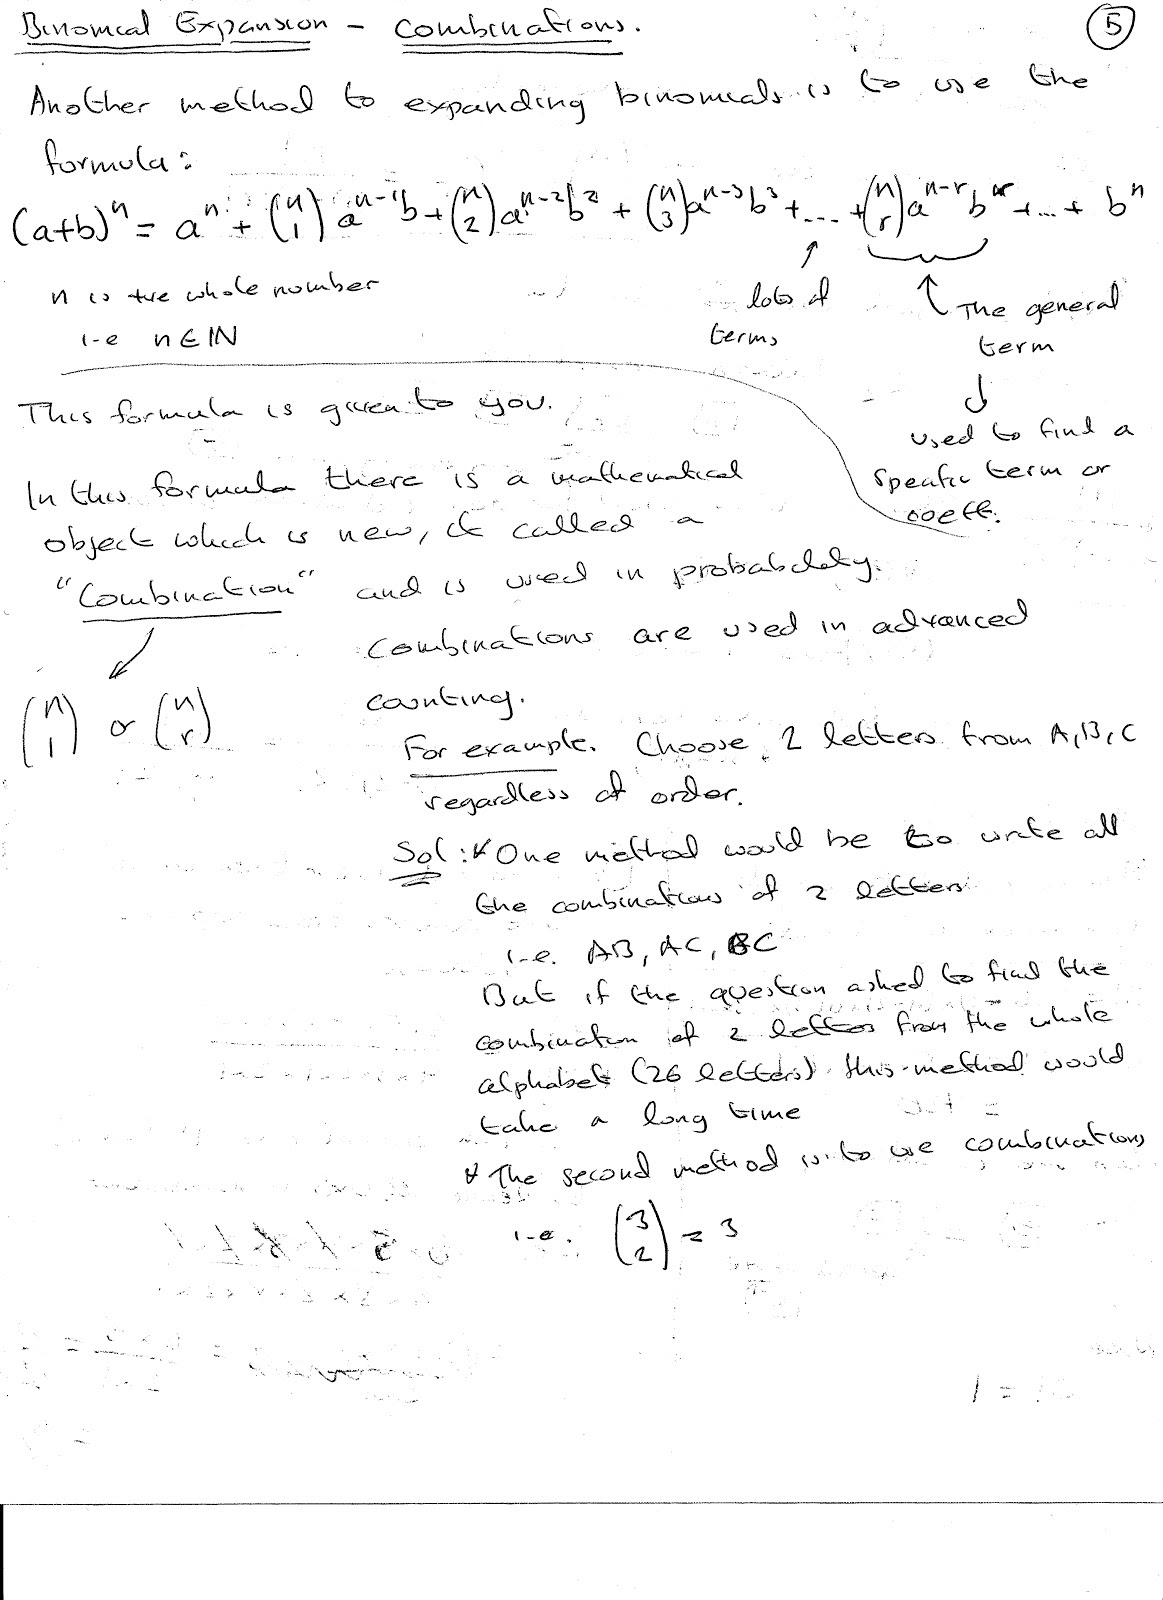 Binomial Expansion - Combinations.
5
Another method to expanding binomials is to use the
formula:
(a+b)^n = a^n + (n 1) a^{n-1}b + (n 2) a^{n-2}b^2 + (n 3) a^{n-3}b^3 + .... + (n r) a^{n-r}b^r + ... + b^n
n is +ve whole number
i-e n ∈ IN
lots of
terms
The general
term
used to find a
specific term or
coeff.
This formula is given to you.
In this formula there is a mathematical
object which is new, it called a
"Combination" and is used in probability.
Combinations are used in advanced
counting.
(n 1) or (n r)
For example. Choose 2 letters from A, B, C
regardless of order.
Sol: * One method would be to write all
the combinations of 2 letters
i-e. AB, AC, BC
But if the question asked to find the
combination of 2 letters from the whole
alphabet (26 letters) this method would
take a long time
* The second method is to use combinations
i-e. (3 2) = 3